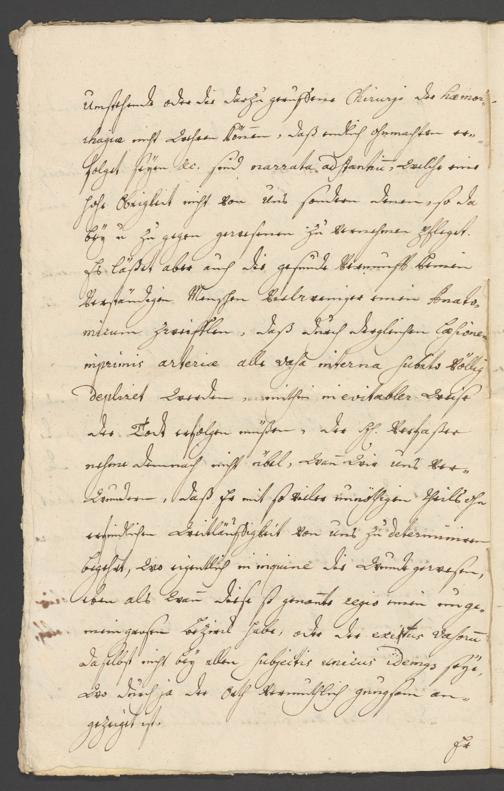 Umstehende oder die darzu geruffene Chirurgi der hæmor-
rhagia nicht wehren können, daß endlich ohnmachten er-
folget seyen &c. sind narrata adstantiũ, welche eine
hohe Obrigkeit nicht von uns sondern denen, so da
bey u. zu gegen gewesenen zu vernehmen pfleget.
Es läßet aber auch die gesunde Vernunfft keinen
Verständigen Menschen vielweniger einen Anato-
micum zweifflen, daß durch dergleichen læsionem
inprimis arteriæ alle vasa interna subito völlig
depliret werden, mithin inevitabler weise
der Todt erfolgen müßen, der H. Verfaßer
nehme demnach nicht übel, wann wir uns ver-
wundern, daß Er mit so vieler unnöthigen theils ohn
erfindlichen Weitläuffigkeit von uns zu determiniren
begehrt, wo eigentlich in inguine die Wunde gewesen,
eben als wann diese so genante regio einen unge-
mein großen bezirck habe, oder der exitus vasorum
daselbst nicht bey allen subjectis unicus idemq seye,
wo durch ja der Orth vermuthlich gnugsam an-
gezeiget ist.
Er